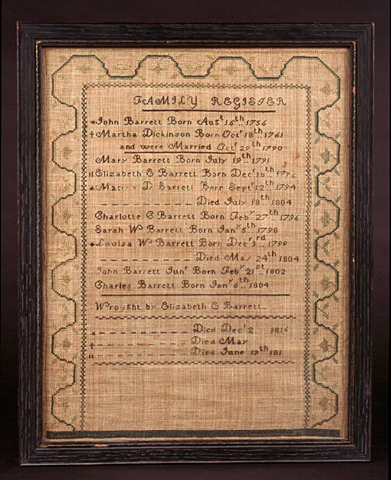 FAMILY REGISTER
John Barrett Born Augt 16th 1756
Martha Dickinson Born Oct 18th 1761
and were Married Oct 29th 1790
Mary Barrett Born July 19th 1791
Elizabeth C Barrett Born Decr 18th
D Barrett Born Sept 12th 1794
Died July 18th 1804
Charlotte C Barrett Born Feb 27th 1796
Sarah W Barrett Born Jan 8th 1798
Louisa W Barrett Born Dec 3rd 1799
Died May 24th 1804
John Barrett Junr Born Feb 21st 1802
Charles Barrett Born Jan 6th 1804
Wrought by Elizabeth C Barrett
Died Dec 2 1816
Died May
Died June 19th